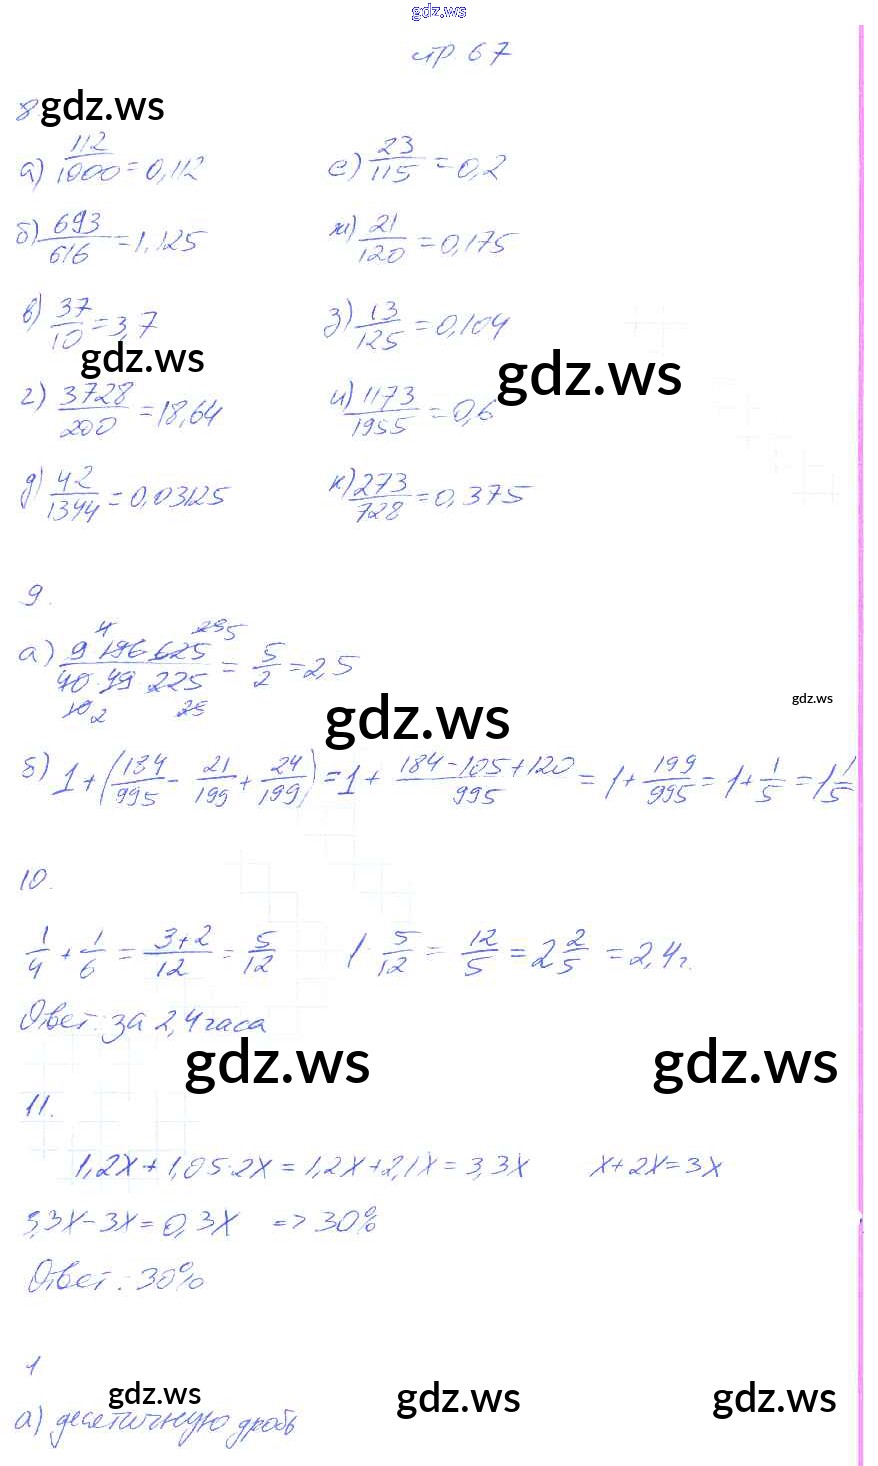 gdz.ws
стр. 67
8. gdz.ws
а) 112/1000 = 0,112
е) 23/115 = 0,2
б) 693/616 = 1,125
ж) 21/120 = 0,175
в) 37/10 = 3,7
з) 13/125 = 0,104
gdz.ws
gdz.ws
г) 3728/200 = 18,64
и) 1173/1955 = 0,6
д) 42/1344 = 0,03125
к) 273/728 = 0,375
9.
а) 9 196 625 / 40 49 225 = 5/2 = 2,5
gdz.ws
gdz.ws
б) 1 + (184/995 - 21/199 + 24/199) = 1 + (184 - 105 + 120)/995 = 1 + 199/995 = 1 + 1/5 = 1 1/5
10.
1/4 + 1/6 = (3+2)/12 = 5/12 1 : 5/12 = 12/5 = 2 2/5 = 2,4 г.
Ответ: за 2,4 часа
gdz.ws
gdz.ws
11.
1,2x + 1,05·2x = 1,2x + 2,1x = 3,3x x + 2x = 3x
3,3x - 3x = 0,3x => 30%
Ответ: 30%
1
gdz.ws
gdz.ws
gdz.ws
а) десятичную дробь